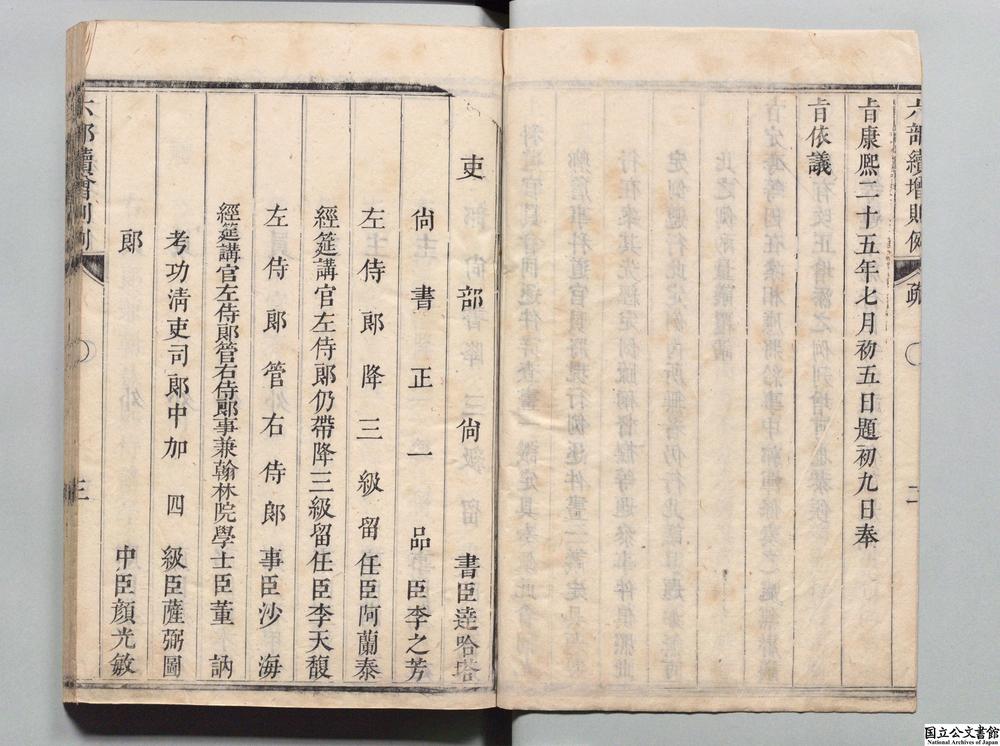 六部續增則例 疏 二
旨康熙二十五年七月初五日題初九日奉
旨依議
吏部尙書臣達哈塔
尙書正一品臣李之芳
左侍郞降三級留任臣阿蘭泰
經筵講官左侍郞仍帶降三級留任臣李天馥
左侍郞管右侍郞事臣沙海
經筵講官左侍郞管右侍郞事兼翰林院學士臣董訥
考功淸吏司郞中加四級臣薩弼圖
郞中臣顔光敏
六部續增則例 三
国立公文書館
National Archives of Japan